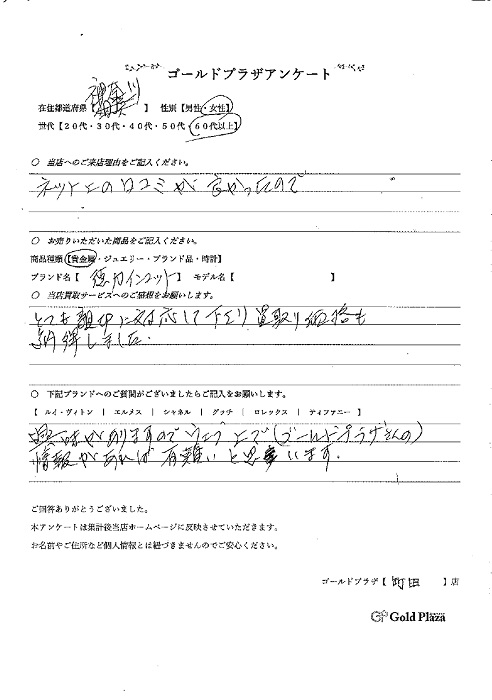 ゴールドプラザアンケート
在住都道府県【神奈川】 性別【男性・女性】
世代【20代・30代・40代・50代・60代以上】
○ 当店へのご来店理由をご記入ください。
ネット上の口コミが高かったので
○ お売りいただいた商品をご記入ください。
商品種類【貴金属・ジュエリー・ブランド品・時計】
ブランド名【徳力インゴット】 モデル名【 】
○ 当店買取サービスへのご感想をお願いします。
とても親切に対応して下さり買取り価格も
納得しました。
○ 下記ブランドへのご質問がございましたらご記入をお願いします。
【 ルイ・ヴィトン | エルメス | シャネル | グッチ | ロレックス | ティファニー 】
興味がありますのでウェブ上で(ゴールドプラザさんの)
情報があれば有難いと思います。
ご回答ありがとうございました。
本アンケートは集計後当店ホームページに反映させていただきます。
お名前やご住所など個人情報とは紐づきませんのでご安心ください。
ゴールドプラザ【 町田 】店
GP Gold Plaza